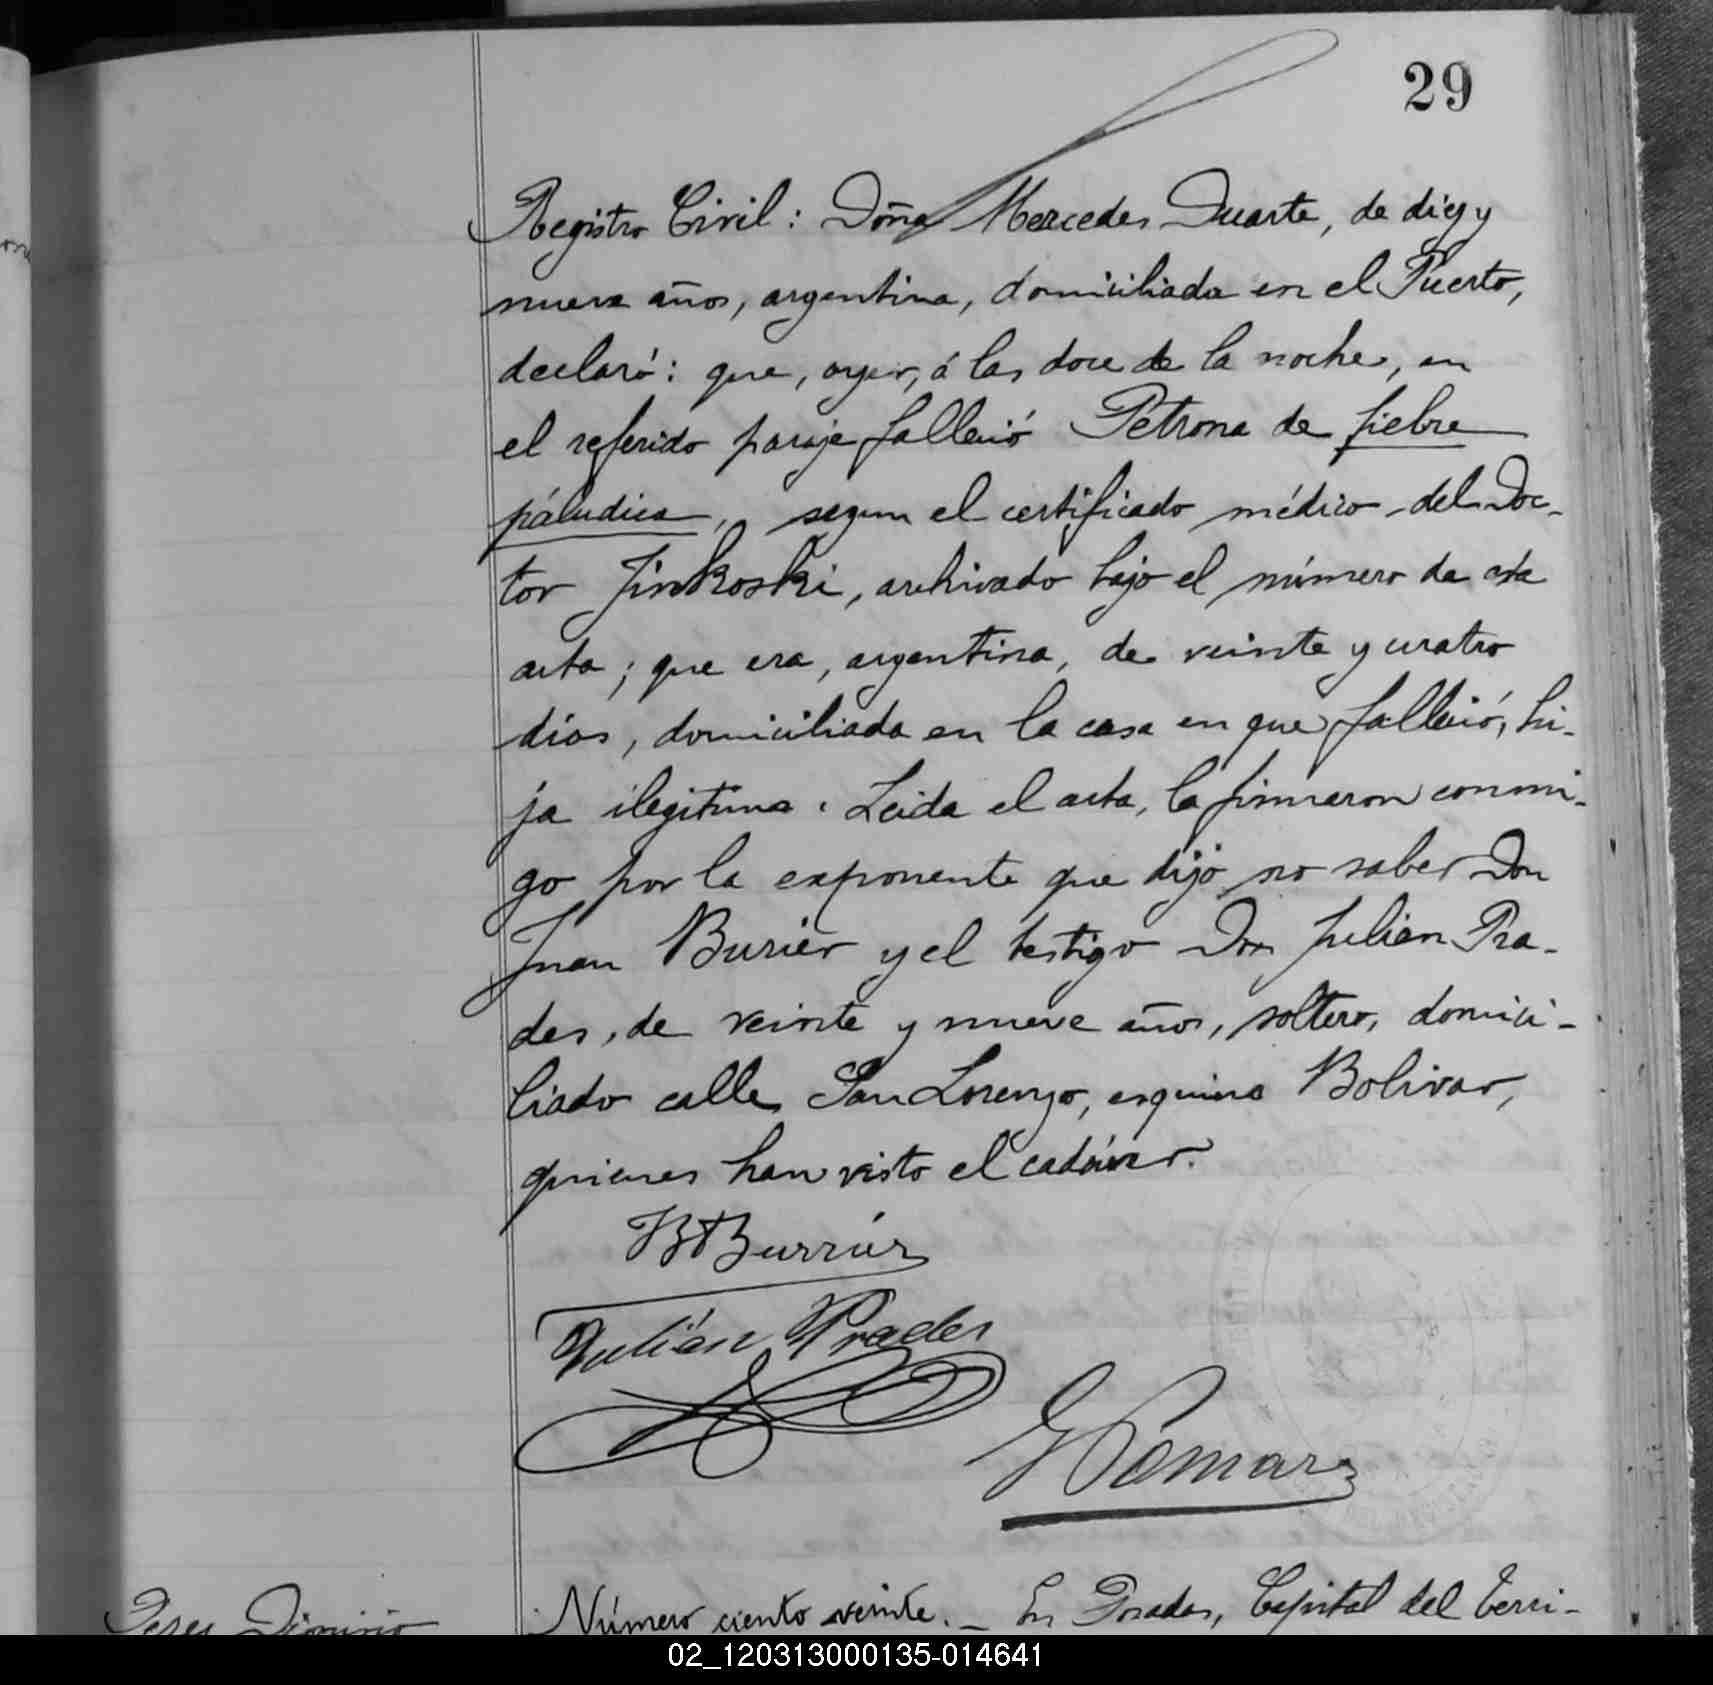 29
Registro Civil: Doña Mercedes Duarte, de diez y
nueve años, argentina, domiciliada en el Puerto,
declaró: que, ayer, á las doce de la noche, en
el referido paraje falleció Petrona de fiebre
páludica, segun el certificado médico del Doc-
tor Jinkoski, archivado bajo el número de esta
acta; que era, argentina, de veinte y cuatro
dias, domiciliada en la casa en que falleció, hi-
ja ilegitima. Leida el acta, la firmaron conmi-
go por la exponente que dijo no saber Don
Juan Burier y el testigo Don Julian Pra-
des, de veinte y nueve años, soltero, domici-
liado calle San Lorenzo, esquina Bolivar,
quienes han visto el cadáver.
Burrier
Julián Prades
Pomar
Número ciento veinte. _ En Posadas, Capital del Terri-
Peres Dionisio
02_120313000135-014641